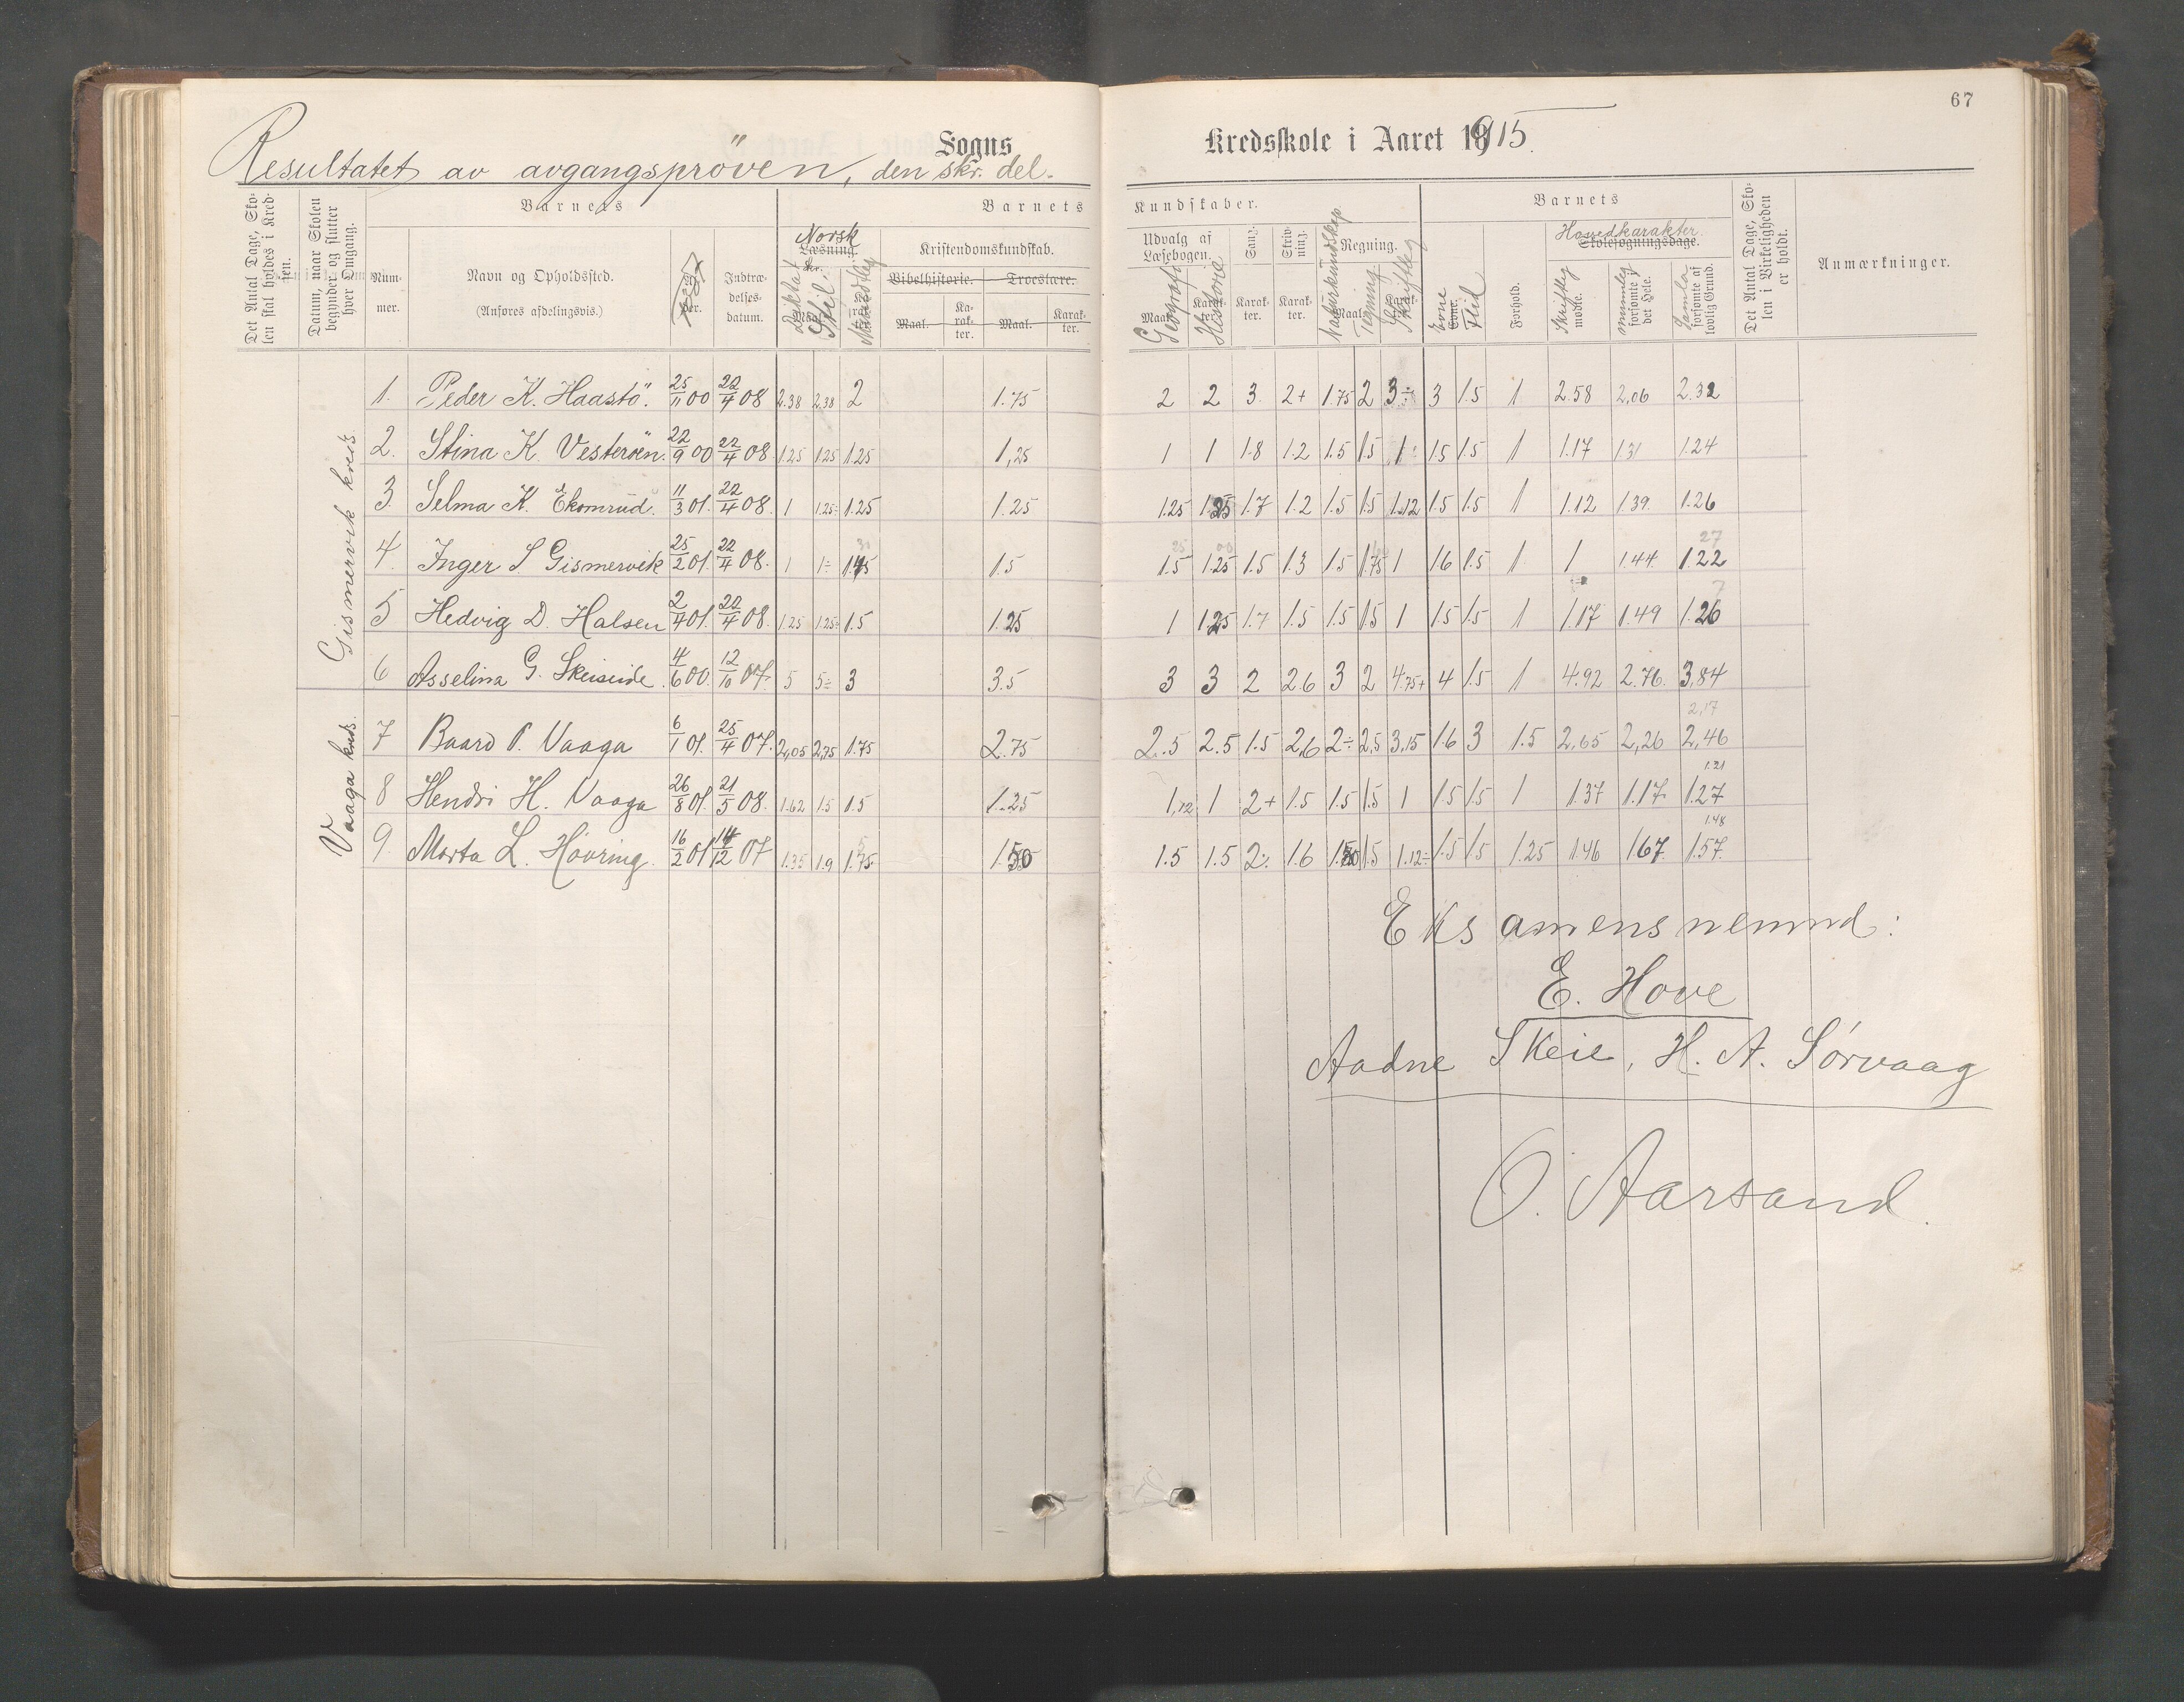 67
Resultatet av avgangspröven, den skr. del.
Sogns
Kredsskole i Aaret 1915.
Det Antal Dage, Skolen skal holdes i Kredsen.
Datum, naar Skolen begynder og slutter hver Omgang.
Barnets
Nummer.
Navn og Opholdssted.
(Anføres afdelingsvis.)
Indtrædelsesdatum.
Barnets Kundskaber.
Norsk
Læsning.
Diktat
Stil
Mundtleg
Kristendomskundskab.
Bibelhistorie.
Troeslære.
Maal.
Karakter.
Maal.
Karakter.
Udvalg af Læsebogen.
Geografi
Historie
Sang.
Karakter.
Skrivning.
Karakter.
Naturkundskap
Regning.
Tegning
Skriftleg
Barnets
Evne
Flid
Forhold.
Hovedkarakter
Skolesøgningsdage.
Skriftleg
mødte.
mundtleg
forsømte i det Hele.
Samla
forsømte af lovlig Grund.
Det Antal Dage, Skolen i Virkeligheden er holdt.
Anmærkninger.
Gismervik kreds
1. Peder K. Haastö. 25/11 00 22/4 08 2.38 2.38 2 1.75 2 2 3 2+ 1.75 2 3÷ 3 1.5 1 2.58 2,06 2.32
2. Stina K. Vesterøen. 22/9 00 22/4 08 1.25 1.25 1.25 1,25 1 1 1.8 1.2 1.5 1.5 1÷ 1.5 1.5 1 1.17 1.31 1.24
3. Selma K. Ekornrud. 11/3 01. 22/4 08. 1 1.25÷ 1.25 1.25 1.25 1.25 1.7 1.2 1.5 1.5 1.12 1.5 1.5 1 1.12 1.39. 1.26
4. Inger S. Gismervik 25/2 01. 22/4 08. 1 1÷ 1.45 1.5 1.5 1.25 1.5 1.3 1.5 1.75 1 1.6 1.5 1 1 1.44. 1.22
5 Hedvig D. Halsen 2/4 01. 22/4 08. 1.25 1.25÷ 1.5 1.25 1 1.25 1.7 1.5 1.5 1.5 1 1.5 1.5 1 1.17 1.49 1.26
6 Asselina G. Skeiseide. 4/6 00. 12/10 07. 5 5÷ 3 3.5 3 3 2 2.6 3 2 4.75+ 4 1.5 1 4.92 2.76. 3,84
Vaaga kreds.
7 Baard P. Vaaga 6/1 01. 25/4 07. 2,05 2,75 1.75 2.75 2.5 2.5 1.5 2,6 2÷ 2,5 3,15 1.6 3 1.5 2,65 2,26 2,46
8 Hendri H. Vaaga 26/8 01. 21/5 08. 1.62 1.5 1.5 1.25 1,12 1 2+ 1.5 1.5 1.5 1 1.5 1.5 1 1.37 1.17 1.27
9. Marta L. Hovring. 16/2 01 14/12 07 1.35 1.9 1.75 1.50 1.5 1.5 2÷ 1.6 1.50 1.5 1.12÷ 1.5 1.5 1.25 1.46 1.67 1.57.
Eksamensnemnd:
E. Hove
Aadne Skeie, H. A. Sørvaag
O. Aarsand.